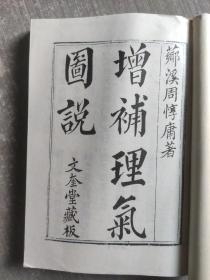 薌溪周惇庸著
增補理氣
圖説
文奎堂藏板